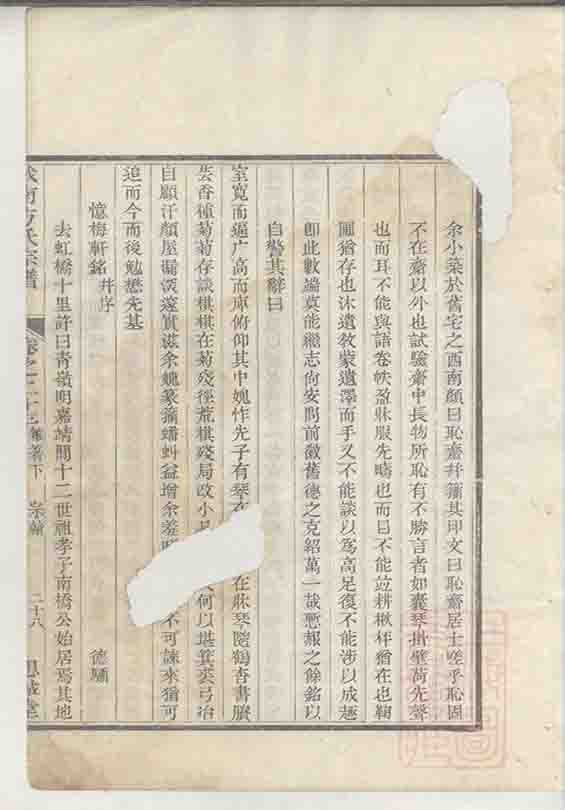 余小築於舊宅之西南顏曰恥齋幷籀其印文曰恥齋居士嗟乎恥固
不在齋以外也試驗齋中長物所恥有不勝言者如囊琴掛壁尚先聲
也而耳不能與語卷帙盈牀服先疇也而目不能竝耕楸枰猶在也鞠
圃猶存也沐遺敎蒙遺澤而手又不能談以爲高足復不能涉以成趣
卽此數端莫能繼志尚安問前徽舊德之克紹萬一哉慙赧之餘銘以
自警其辭曰
室寬而逼广高而庳俯仰其中媿怍先子有琴在 在牀琴隨鶴杳書賸
芸香種菊菊存談棋棋在菊殘徑荒棋殘局改小 何以堪箕裘弓冶
自顧汗顏屋漏深邃實滋余媿篆籀蟠虯益增余羞 不可諫來猶可
追而今而後勉懋先基
憶梅軒銘 幷序 德驌
去虹橋十里許曰靑嶺明嘉靖間十二世祖孝子南橋公始居焉其地
南方氏宗譜 卷之二十三 雜著下 宗 二十八 思誠堂